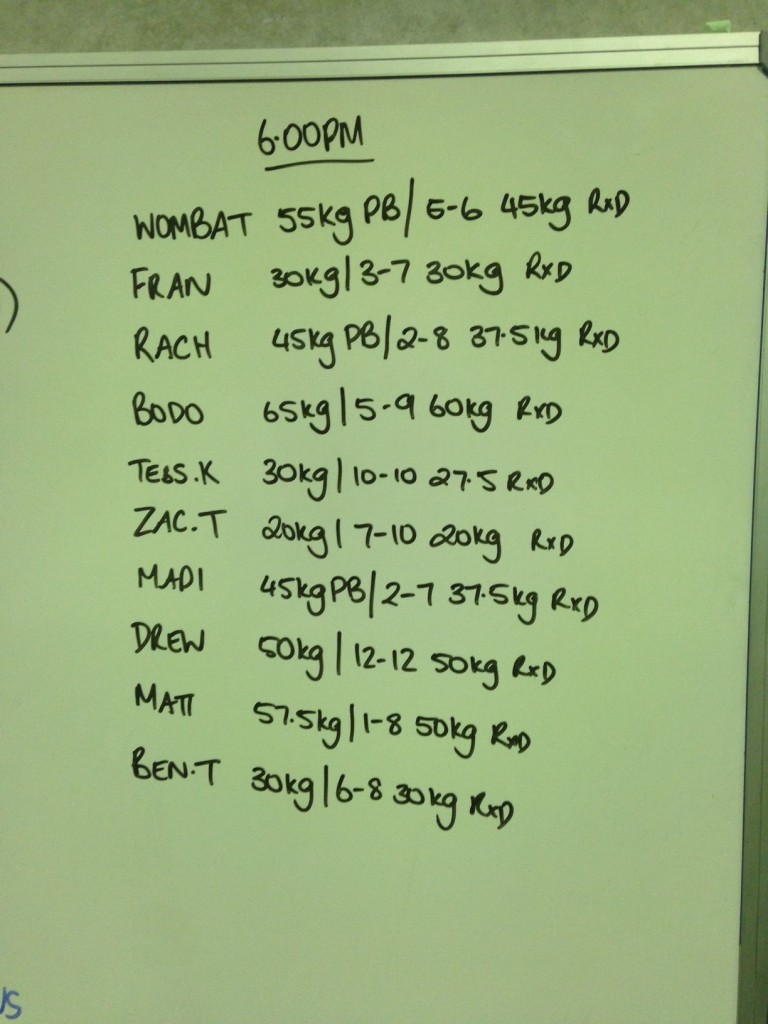 6.00PM
WOMBAT 55kg PB/ 5-6 45kg RxD
FRAN 30kg/3-7 30kg RxD
RACH 45kg PB/2-8 37.5kg RxD
BODO 65kg/5-9 60kg RxD
TESS.K 30kg/10-10 27.5 RxD
ZAC.T 20kg/7-10 20kg RxD
MADI 45kg PB/2-7 37.5kg RxD
DREW 50kg/12-12 50kg RxD
MATT 57.5kg/1-8 50kg RxD
BEN.T 30kg/6-8 30kg RxD